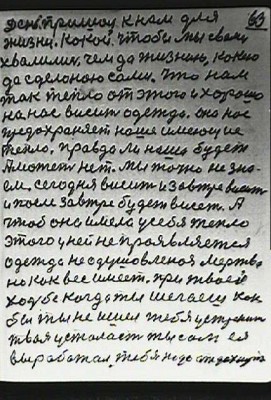 День пришол к нам для 63
жизни. Какой, чтобы мы свои
хвалили, чем да жизнию, какою
да сделоною сами. Что нам
так тепло от этого и хорошо
на нас висит одежда. Она нас
предохраняет наше имеющие
тепло. Правда ли наша будет
А может нет. Мы точно не зна-
ем, сегодня висит и завтра висит
и после завтра будет висет. А
чтоб она имела у себя тепло
этого у ней не проявляется
одежда не одушовленая мертва
но как вес имеет. При твоей
ходьбе когда ты шегаеш как
бы ты не шел тебя
твоя усталаст ты сам ея
выработал, тебя надо отдохнуть